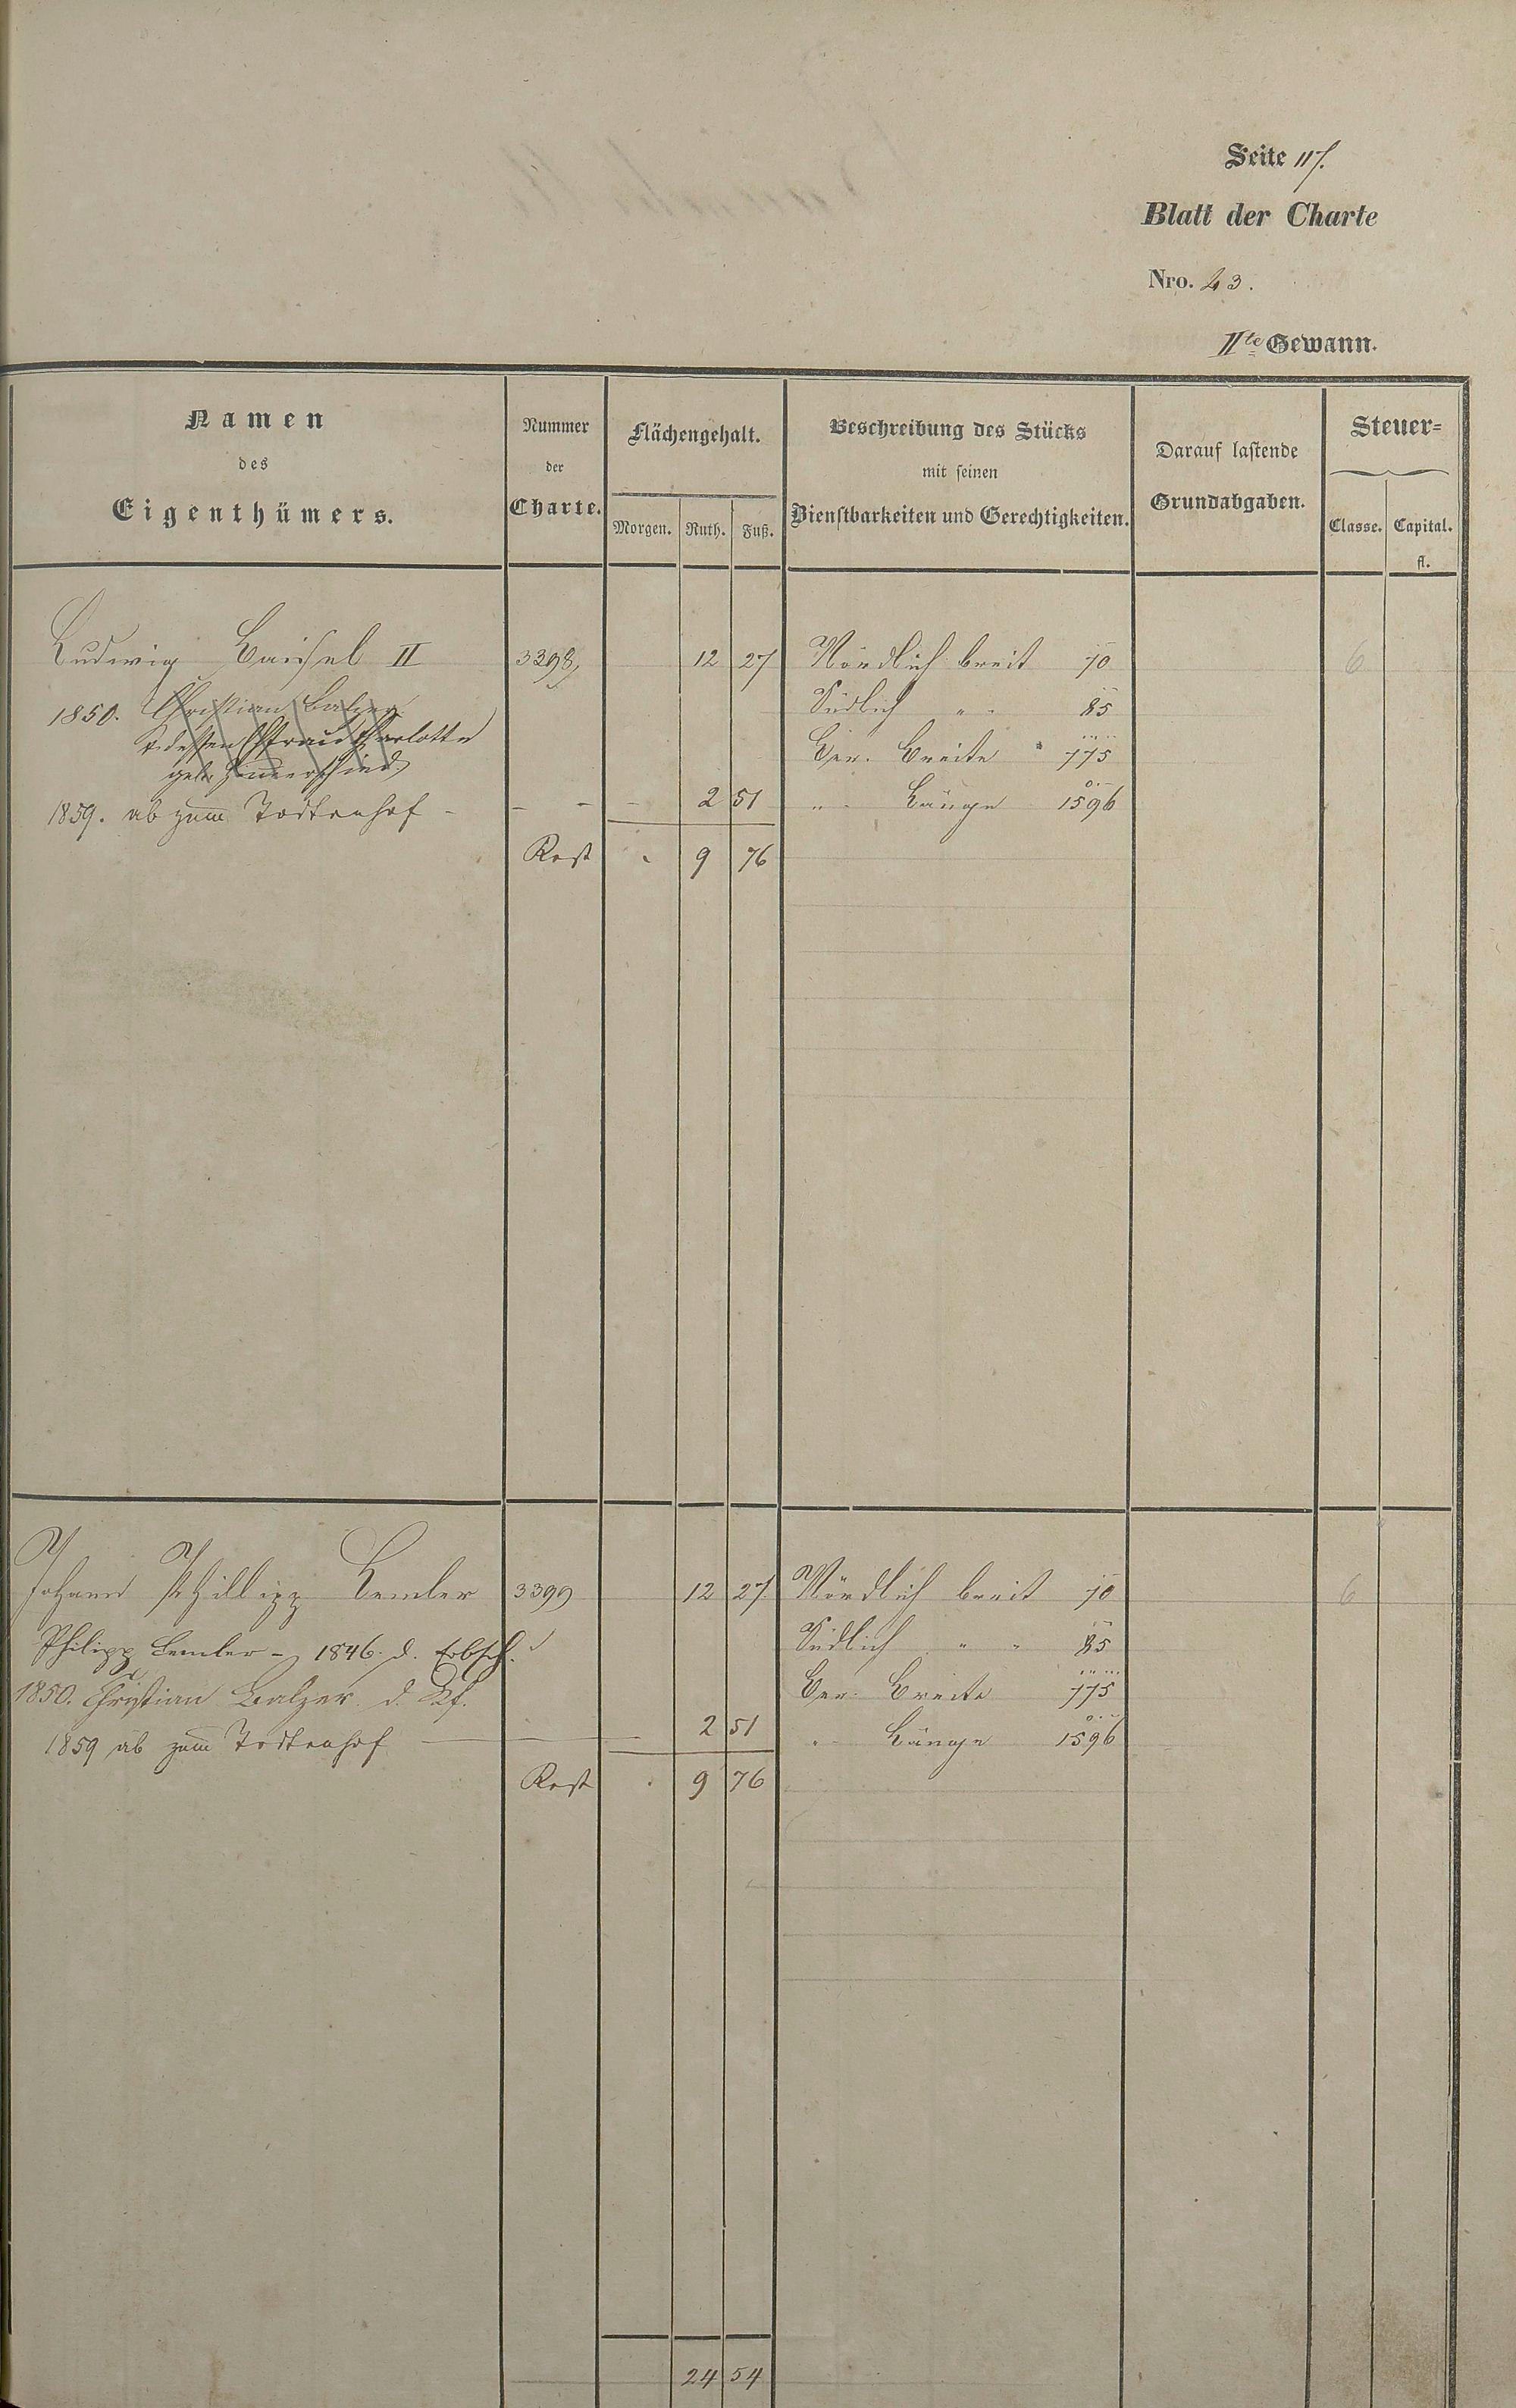 Seite 117.
Blatt der Charte
Nro. 23.
IIte Gewann.
Namen des Eigenthümers.
Nummer der Charte.
Flächengehalt.
Morgen. Ruth. Fuß.
Beschreibung des Stücks mit seinen Dienstbarkeiten und Gerechtigkeiten.
Darauf lastende Grundabgaben.
Steuer-
Classe. Capital.
fl.
Ludwig Baisel II 3398 12 27 Nördlich breit 70 6
1850. Christian Balzer Südlich " " 85
& dessen Ehefrau Charlotte Ber. Breite 775
geb.
1859. ab zum Todtenhof - - - - 2 51 " Länge 1596
Rest 9 76
Johann Phillipp Lemler 3399 12 27 Nördlich breit 70 6
Philipp Lemler - 1846. d. Erbsch. Südlich " " 85
1850. Christian Balzer d. Kf. Ber. Breite 775
1859 ab zum Todtenhof 2 51 " Länge 1596
Rest 9 76
24 54